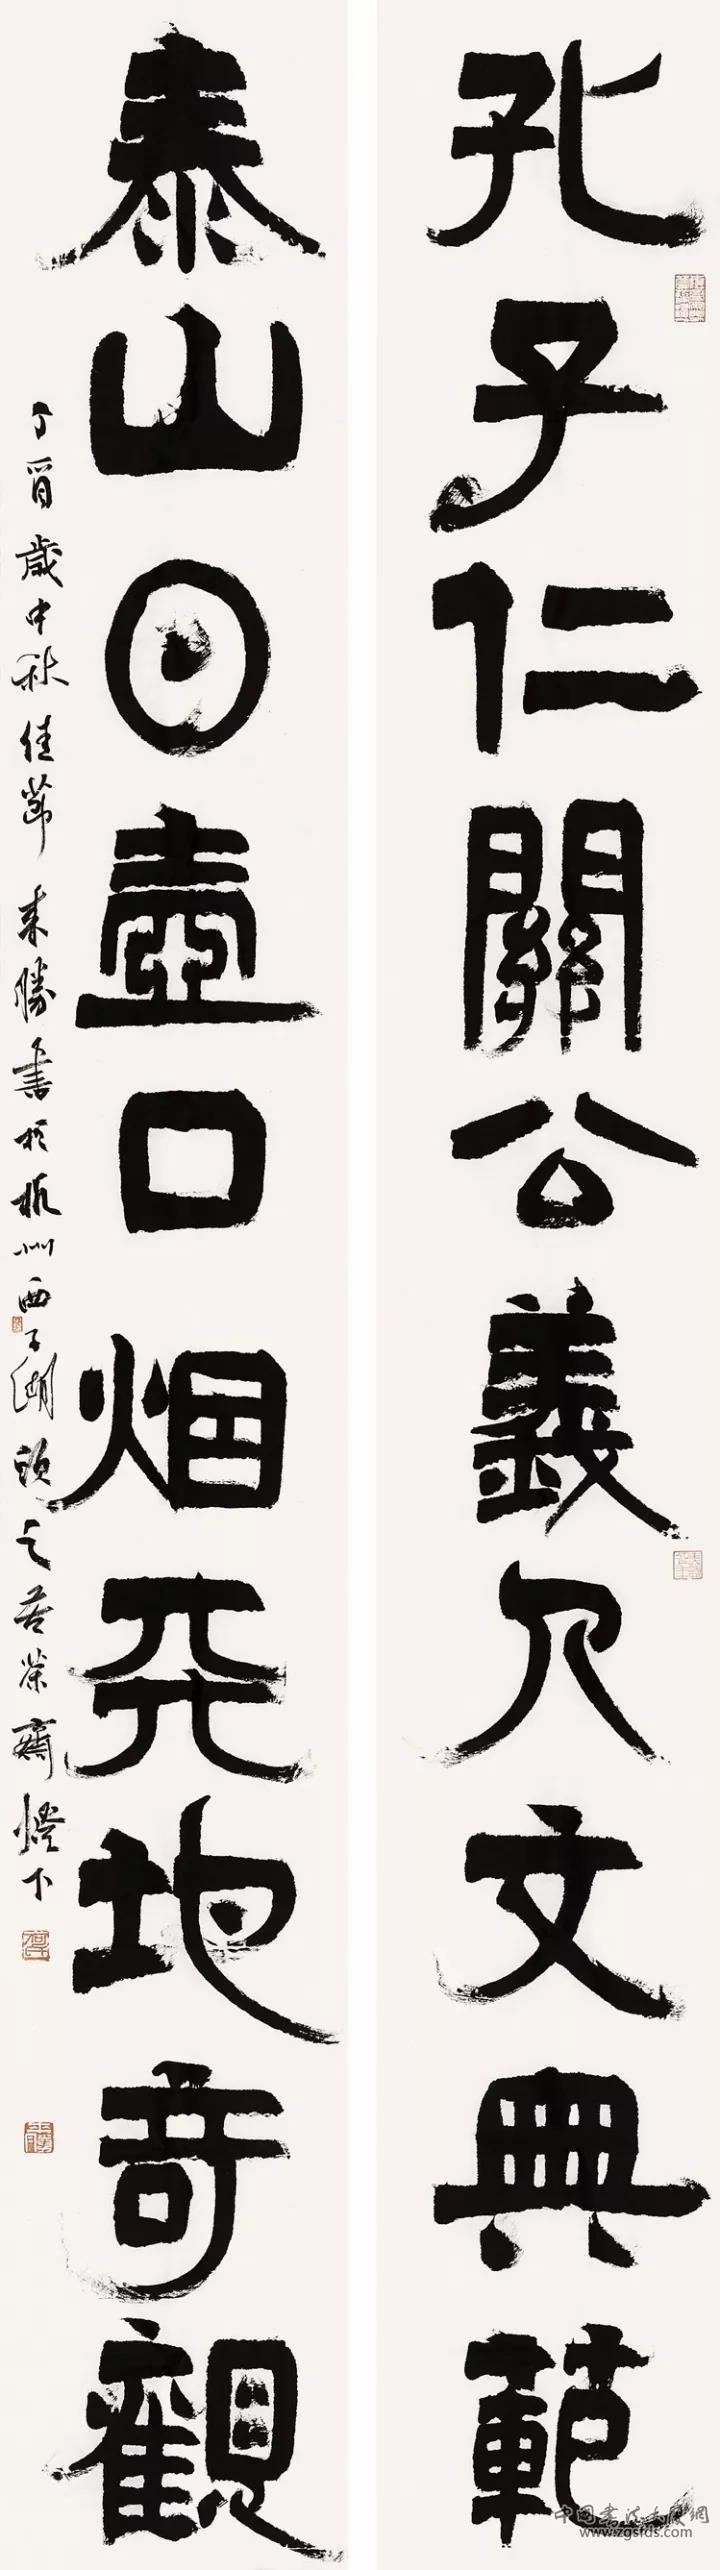 孔子仁關公義人文典範
泰山日壺口烟天地奇觀
丁酉歲中秋佳節來勝書於杭州西子湖頭之若榮齋燈下
中国书法大厦網
www.zgsfds.com